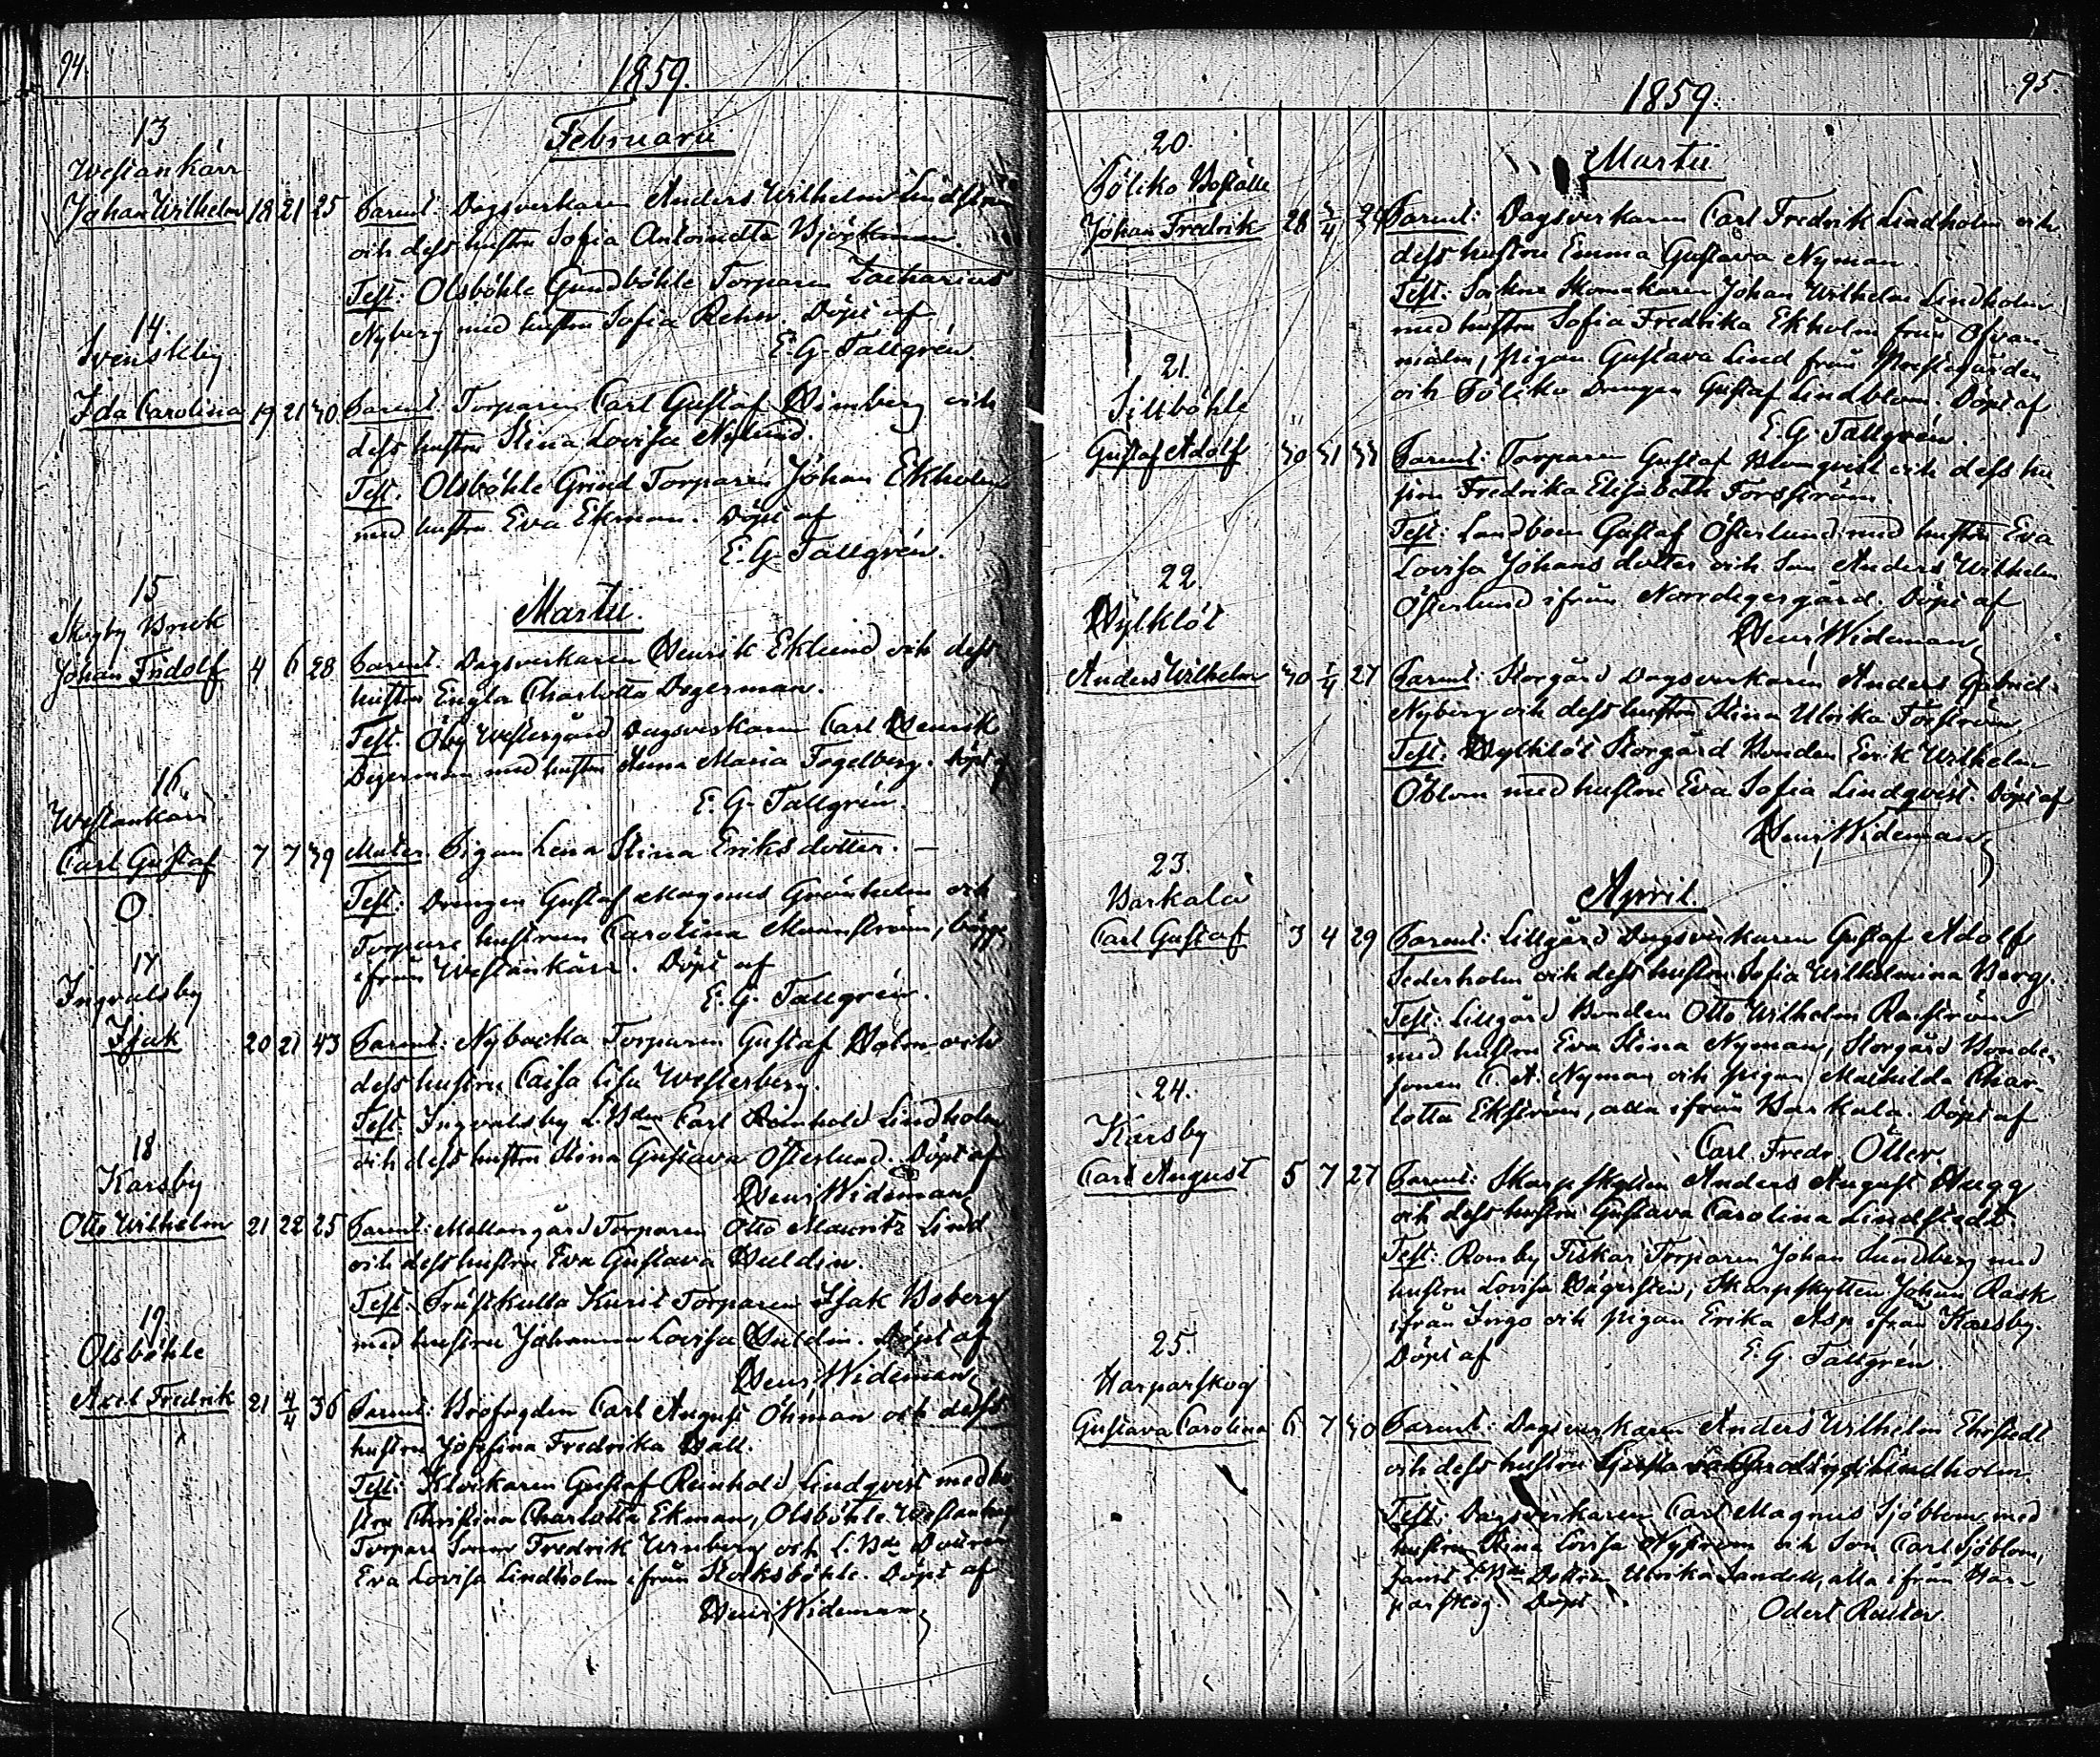 94.
1859.
Februarii
13
Westankärr
Johan Wilhelm 18 21 25 Parent: Dagsverkaren Anders Wilhelm Lindström
och dess hustru Sofia Antoinetta Björkman.
Test: Olsböhle Gundböhle Torparen Zacharias
Nyberg med hustru Sofia Rehn. Döpt af
E. G. Tallgrén.
14.
Svenskby
Ida Carolina 19 21 30. Parent. Torparen Carl Gustaf Wimberg och
dess hustru Stina Lovisa Nylund.
Test. Olsböhle Grind Torparen Johan Ekholm
med hustru Eva Ekman. Döpt af
E. G. Tallgrén.
Martii.
15
Skogby Bruk
Johan Fridolf 4 6 28 Parent. Dagsverkaren Henrik Eklund och dess
hustru Engla Charlotta Degerman.
Test. Öby Westergård Dagsverkaren Carl Henrik
Degerman med hustru Anna Maria Fogelberg. Döpt af
E. G. Tallgrén.
16.
Westankärr
Carl Gustaf 7 7 39 Mater. Pigan Lena Stina Eriksdotter. —
O
Test: Drengen Gustaf Magnus Grönholm och
Torpare hustrun Carolina Mannström, bägge
ifrån Westankärr. Döpt af
E. G. Tallgrén.
17
Ingvalsby
Isak 20 21 43 Parent: Nybacka Torparen Gustaf Holm och
dess hustru Caisa Lisa Westerberg.
Test. Ingvalsby L. Bden Carl Reinhold Lindholm
och dess hustru Stina Gustava Österlund. Döpt af
Henr. Wideman
18
Karsby
Otto Wilhelm 21 22 25 Parent: Mellangård Torparen Otto Mauritz Lind
och dess hustru Eva Gustava Huldin.
Test. Kurit Torparen Isak Boberg
med hustru Johanna Lovisa Huldin. Döpt af
Henr. Wideman
19
Olsböhle
Axel Fredrik 21 4/4 36 Parent: Brofogden Carl August Öhman och dess
hustru Josefina Fredrika Hall.
Test: Klockaren Gustaf Reinhold Lindqvist med hu
stru Christina Charlotta Ekman, Olsböhle
Torpare Sonen Fredrik och L. Bde Dottren
Eva Lovisa Lindholm ifrån Storksböhle. Döpt af
Henr. Wideman
95.
1859.
Martii
20.
Böliko Boställe
Johan Fredrik 28 3/4 Parent: Dagsverkaren Carl Fredrik Lindholm och
dess hustru Emma Gustava Nyman.
Test. Sockne Skomakaren Johan Wilhelm Lindholm
med hustru Sofia Fredrika Ekholm från Ofvan-
malm, pigan Gustava Lind från Prestegården
och Böliko Drengen Gustaf Lindblom. Döpt af
E. G. Tallgrén.
21.
Sillböhle
Gustaf Adolf 30 31 33 Parent: Torparen Gustaf Blomqvist och dess hu-
stru Fredrika Elisabeth Forsström.
Test: Landbon Gustaf Österlund med hustru Eva
Lovisa Johansdotter och Son Anders Wilhelm
Österlund ifrån Norrdegergård. Döpt af
Henr. Wideman
22
Hylkløt
Anders Wilhelm 30 1/4 27 Parent: Storgård Dagsverkaren Anders Gabriel
Nyberg och dess hustru Stina Ulrika Forström.
Test. Storgård Bonden Erik Wilhelm
Öblom med hustru Eva Sofia Lindqvist. Döpt af
Henr. Wideman
April.
23.
Barkala
Carl Gustaf 3 4 29 Parent: Lillgård Dagsverkaren Gustaf Adolf
Sederholm och dess hustru Sofia Wilhelmina Berg.
Test: Lillgård Bonden Otto Wilhelm
med hustru Eva Stina Nyman, Storgård Bonde-
sonen C. A. Nyman och pigan Mathilda Char-
lotta Ekström, alla ifrån Barkala. Döpt af
Carl Fredr. Öller.
24.
Karsby
Carl August 5 7 27 Parent: Skarpskytten Anders August Hugg
och dess hustru Gustava Carolina Lindstedt.
Test: Romby Fiskar Torparen Johan Lundberg med
hustru Lovisa Hägersten, Skarpskytten Johan Rask
ifrån Ingo och pigan Erika Asp ifrån Karsby.
Döpt af E. G. Tallgrén.
25.
Harparskog
Gustava Carolina 6 7 30 Parent: Dagsverkaren Anders Wilhelm Ehrstedt
och dess hustru Lindholm.
Test. Dagsverkaren Carl Magnus Sjöblom med
hustru Stina Lovisa Nyström och Son Carl Sjöblom,
samt L. Bde Dottren Ulrika Sandell, alla ifrån Har-
parskog. Döpt
Odert Reuter.